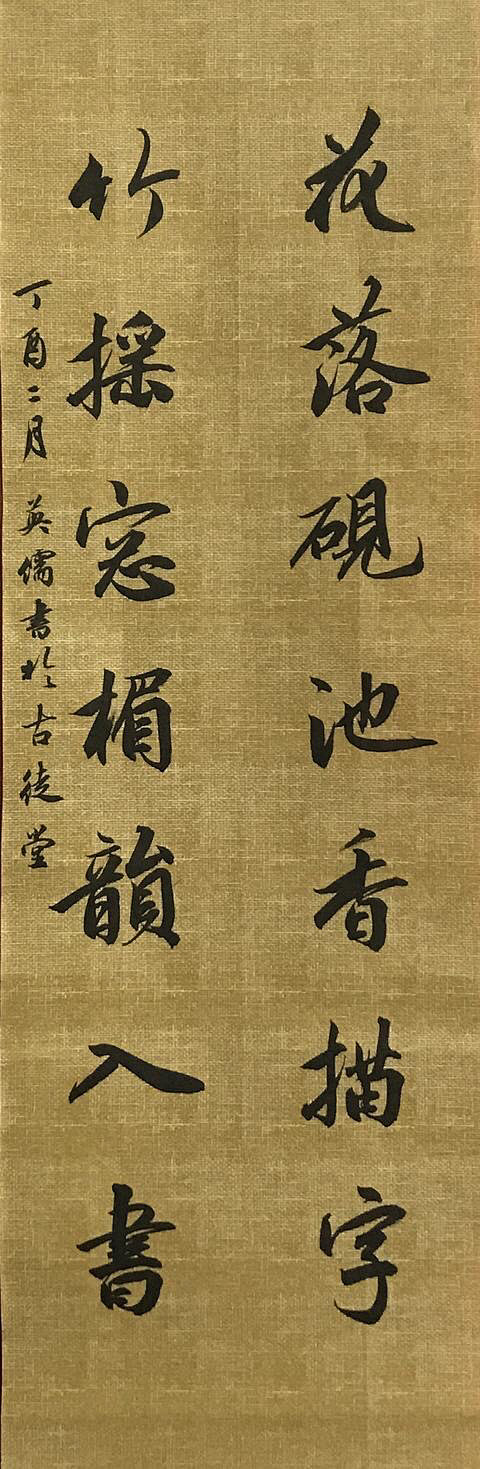 花落硯池香描字
竹摇窓楣韻入書
丁酉二月 英儒書於古徒堂